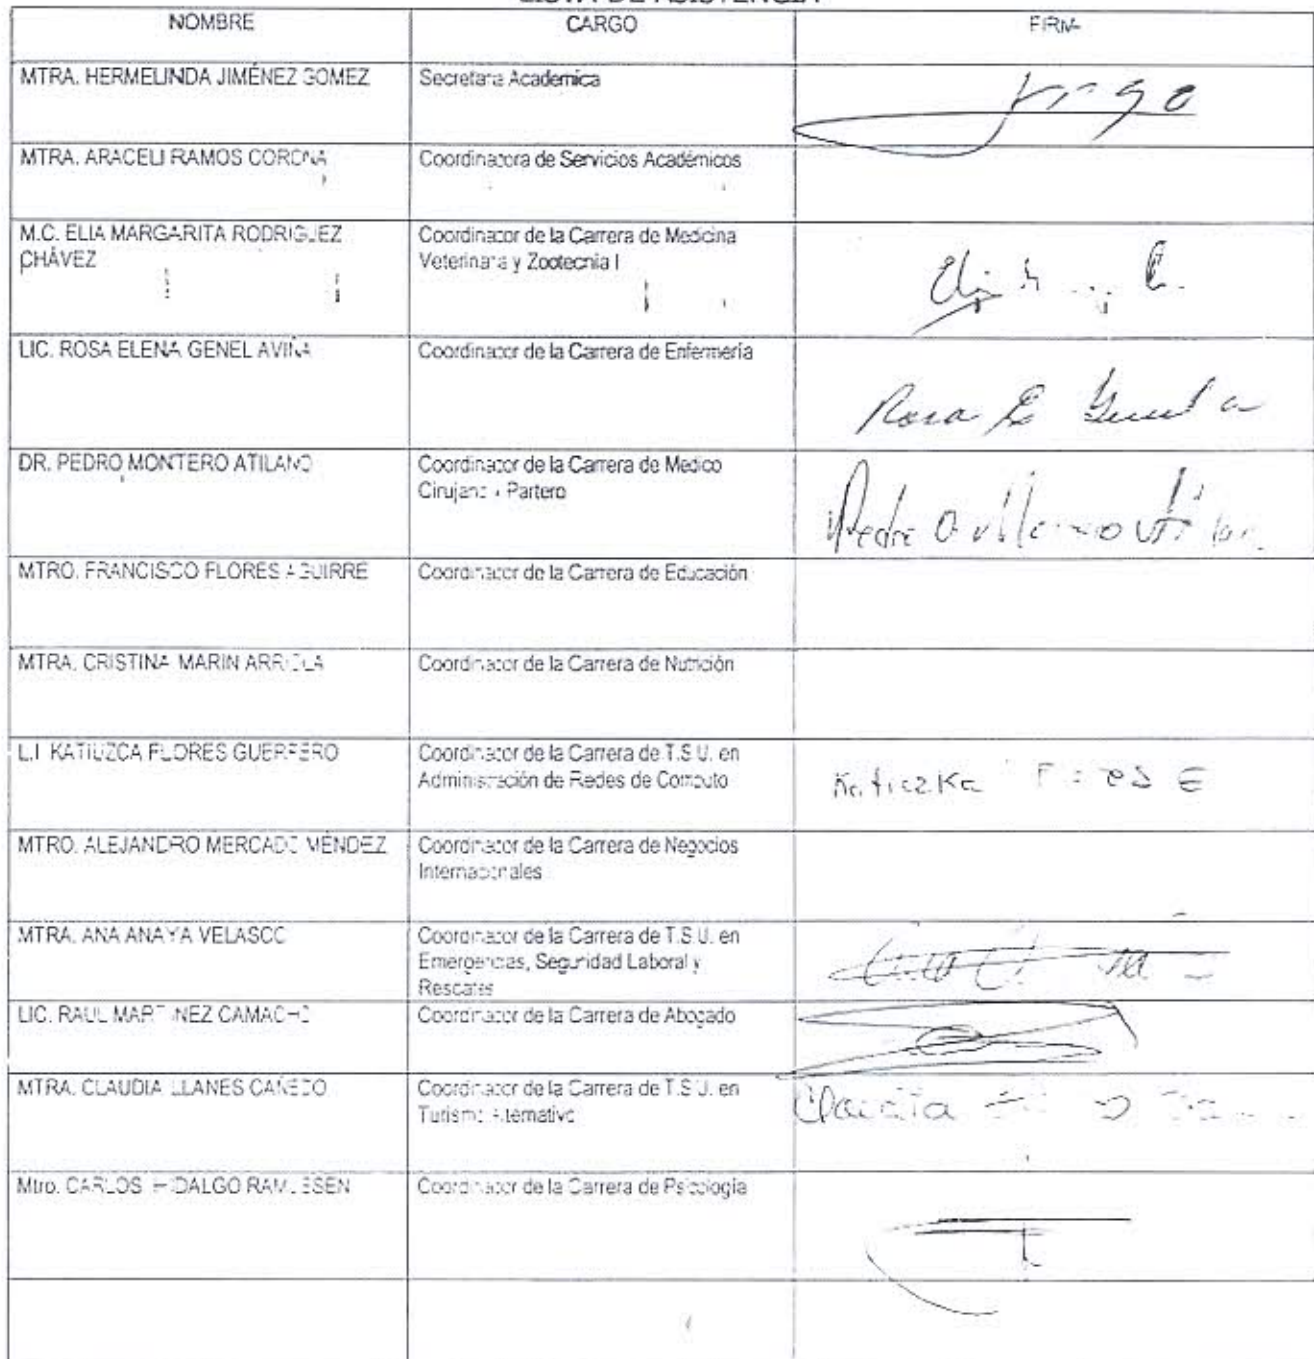 LISTA DE ASISTENCIA
NOMBRE CARGO FIRMA
MTRA. HERMELINDA JIMÉNEZ GOMEZ Secretaria Academica
MTRA. ARACELI RAMOS CORONA Coordinadora de Servicios Académicos
M.C. ELIA MARGARITA RODRIGUEZ CHÁVEZ Coordinador de la Carrera de Medicina
Veterinaria y Zootecnia I
LIC. ROSA ELENA GENEL AVIÑA Coordinador de la Carrera de Enfermería
Rosa E Genel a
DR. PEDRO MONTERO ATILANO Coordinador de la Carrera de Medico
Cirujano y Partero
Pedro
MTRO. FRANCISCO FLORES AGUIRRE Coordinador de la Carrera de Educación
MTRA. CRISTINA MARIN ARRIOLA Coordinador de la Carrera de Nutrición
L.I. KATIUZCA FLORES GUERRERO Coordinador de la Carrera de T.S.U. en
Administración de Redes de Computo
Katiuzka
MTRO. ALEJANDRO MERCADO MÉNDEZ Coordinador de la Carrera de Negocios
Internacionales
MTRA. ANA ANAYA VELASCO Coordinador de la Carrera de T.S.U. en
Emergencias, Seguridad Laboral y
Rescates
LIC. RAUL MARTINEZ CAMACHO Coordinador de la Carrera de Abogado
MTRA. CLAUDIA LLANES CAÑEDO Coordinador de la Carrera de T.S.U. en
Turismo Alternativo
Claudia
Mtro. CARLOS HIDALGO RAMUSSEN Coordinador de la Carrera de Psicología